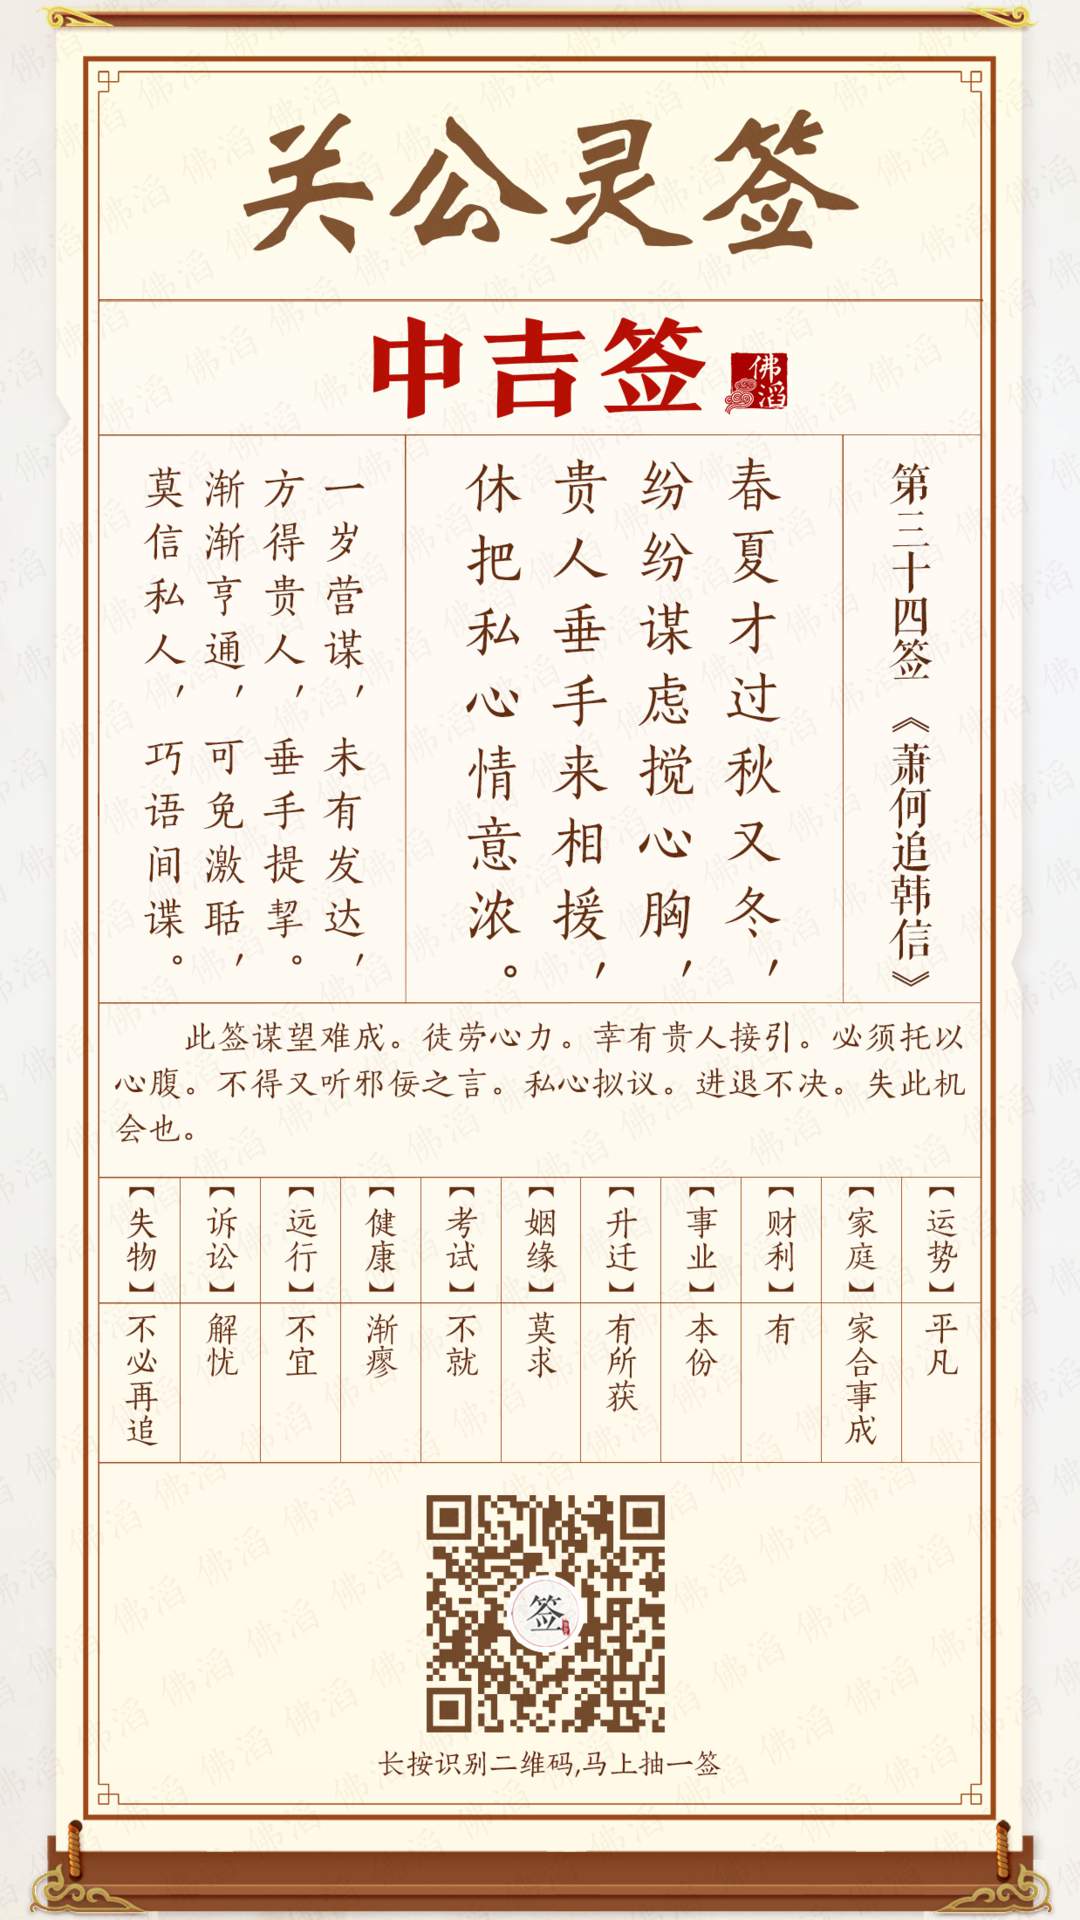 关公灵签
中吉签
佛滔
第三十四签 《萧何追韩信》
春夏才过秋又冬，
纷纷谋虑搅心胸，
贵人垂手来相援，
休把私心情意浓。
一岁营谋，未有发达，
方得贵人，垂手提挈。
渐渐亨通，可免激聒，
莫信私人，巧语间谍。
此签谋望难成。徒劳心力。幸有贵人接引。必须托以
心腹。不得又听邪佞之言。私心拟议。进退不决。失此机
会也。
【运势】平凡
【家庭】家合事成
【财利】有
【事业】本份
【升迁】有所获
【姻缘】莫求
【考试】不就
【健康】渐瘳
【远行】不宜
【诉讼】解忧
【失物】不必再追
签
长按识别二维码,马上抽一签